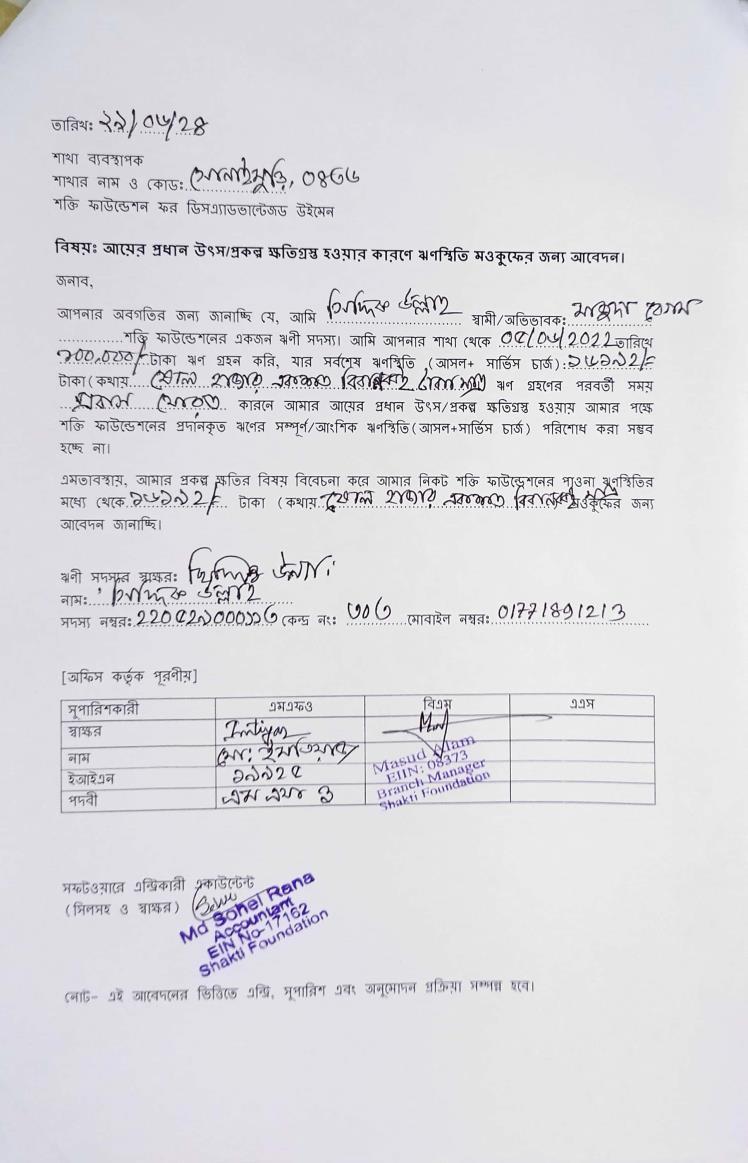 তারিখ: ২৯/০৬/২৪
শাখা ব্যবস্থাপক
শাখার নাম ও কোড: সোনাইমুড়ি, ০৪৬৬
শক্তি ফাউন্ডেশন ফর ডিসএ্যাডভান্টেজড উইমেন
বিষয়ঃ আয়ের প্রধান উৎস/প্রকল্প ক্ষতিগ্রস্ত হওয়ার কারণে ঋণস্থিতি মওকুফের জন্য আবেদন।
জনাব,
আপনার অবগতির জন্য জানাচ্ছি যে, আমি ছিদ্দিক উল্লাহ স্বামী/অভিভাবক: মাছুদা বেগম
শক্তি ফাউন্ডেশনের একজন ঋনী সদস্য। আমি আপনার শাখা থেকে তারিখে
১০০,০০০/= টাকা ঋণ গ্রহন করি, যার সর্বশেষ ঋণস্থিতি (আসল+ সার্ভিস চার্জ): ১৬১৯২/=
টাকা (কথায় ষোল হাজার একশত বিরানব্বই টাকা মাত্র ঋণ গ্রহণের পরবর্তী সময়
প্রবাস ফেরত কারনে আমার আয়ের প্রধান উৎস/প্রকল্প ক্ষতিগ্রস্ত হওয়ায় আমার পক্ষে
শক্তি ফাউন্ডেশনের প্রদানকৃত ঋণের সম্পূর্ণ/আংশিক ঋণস্থিতি (আসল+সার্ভিস চার্জ) পরিশোধ করা সম্ভব
হচ্ছে না।
এমতাবস্থায়, আমার প্রকল্প ক্ষতির বিষয় বিবেচনা করে আমার নিকট শক্তি ফাউন্ডেশনের পাওনা ঋণস্থিতির
মধ্যে থেকে ১৬১৯২/= টাকা (কথায় ষোল হাজার একশত বিরানব্বই মওকুফের জন্য
আবেদন জানাচ্ছি।
ঋনী সদস্যের স্বাক্ষর: ছিদ্দিক উল্লাহ
নাম: ছিদ্দিক উল্লাহ
সদস্য নম্বর: কেন্দ্র নং: ৩০৬ মোবাইল নম্বর: 01771891213
[অফিস কর্তৃক পূরণীয়]
সুপারিশকারী এমএফও বিএম এএস
স্বাক্ষর Imtiyaz
নাম মো: ইমতিয়াজ
ইআইএন ১৯৯২৫
পদবী এম এফ ও
Masud Alam
EIIN: 08373
Branch Manager
Shakti Foundation
সফটওয়ারে এন্ট্রিকারী একাউন্টেন্ট
(সিলসহ ও স্বাক্ষর)
Md Sohel Rana
Accountant
EIN No-17162
Shakti Foundation
নোট- এই আবেদনের ভিত্তিতে এন্ট্রি, সুপারিশ এবং অনুমোদন প্রক্রিয়া সম্পন্ন হবে।